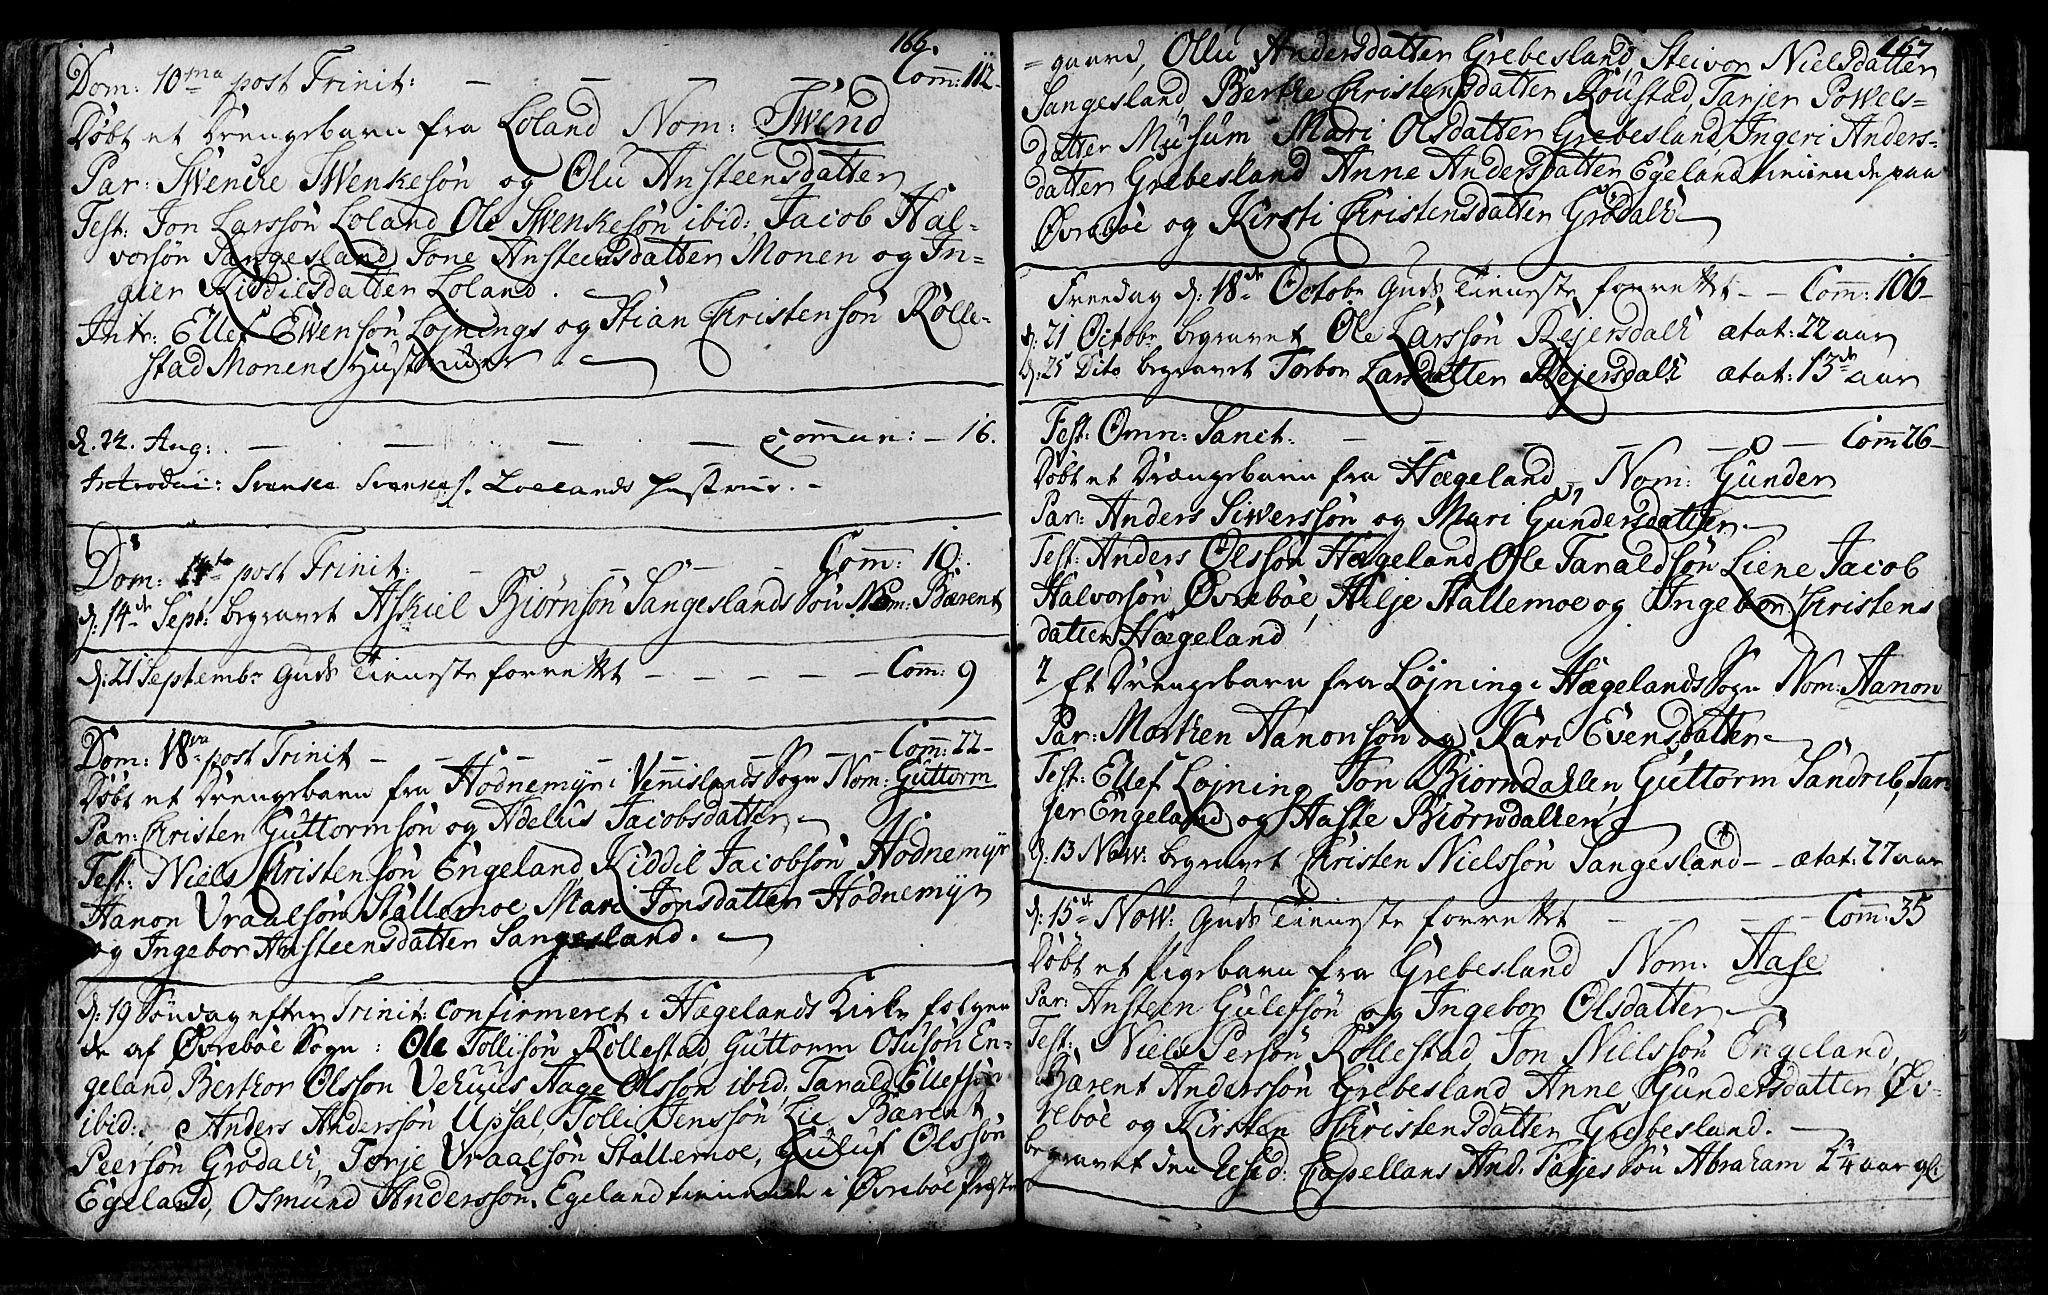 166.
Dom: 10ma post Trinit: – – – – Com: 112–
Døbt et Drengebarn fra Loland Nom: Swend
Par: Swencke Swenkesøn og Olu Ansteensdatter
Test: Jon Larssøn Loland Ole Swenkesøn ibid: Jacob Hal-
vorsøn Sangesland, Tone Ansteensdatter Monen og In-
gier Kiddilsdatter Loland.
Intr: Ellef Ewensøn Løjnings og Stian Christensøn Rølle-
stad Monens Hustruer
d. 22. Aug: – – – – Commun: – 16.
Introduc: Svenke Svenkes. Loelands Hustrue. –
Dom: 14ta post Trinit: – – – Com: 10.
d: 14de Sept: begravet Askiel Biørnsøn Sangeslands Søn Nom: Bærent
d: 21 Septembr Guds Tieneste forrettet – – – – – Com: 9
Dom: 18va post Trinit – – – – – – Com: 22–
Døbt et Drengebarn fra Hodnemyr i Vennislands Sogn Nom: Guttorm
Par: Christen Guttormsøn og Adelus Jacobsdatter
Test: Niels Christensøn Engeland Kiddil Jacobsøn Hodnemyr
Hanon Vraalsøn Stallemoe Mari Jonsdatter Hodnemyr
og Ingebor Ansteensdatter Sangesland.
d: 19 Søndag efter Trinit: Confirmeret i Hægelands Kirke følgen
de af Øvrebøe Sogn: Ole Tollisøn Røllestad, Guttorm Osusøn En-
geland Berthor Olsson Vehuus Aage Olsson ibid; Tarald Ellefsøn
ibid:, Anders Anderssøn Upsal, Tolli Jenssøn Lie, Bærent
Peersøn Grødalh, Terje Vraalsøn Stallemoe, Guluf Olssøn
Egeland, Osmund Andersson Egeland tienende i Øvrebøe Præste
167
=gaard, Ollu Andersdatter Grebesland, Steivor Nielsdatter
Sangesland, Berthe Christensdatter Røustad, Tarjer Powels-
datter Musum Mari Olsdatter Grebesland, Ingeri Anders-
datter Grebesland Anne Andersdatter Egeland tienende paa
Øvrebøe og Kirsti Christensdatter Grødalh
Freedag d: 18de Octobr Guds Tieneste forrettet – – Com: 106–
d: 21 Octobr begravet Ole Larssøn Rejersdalh ætat: 22 aar
d: 25 Dito begravet Torbor Larsdatter Rejersdalh ætat: 13de aar
Fest: Omn: Sanct: – – – – – – Com 26–
Døbt et Drængebarn fra Hægeland – Nom: Gunder
Par: Anders Siwerssøn og Mari Gundersdatter
Test: Anders Olsson Hægeland Ole Taraldsøn Liene Jacob
Halvorsøn Øvrebøe, Hilje Stallemoe og Ingebor Christens
datter Hægeland
2 Et Drengebarn fra Løjning i Hægelands Sogn Nom: Aanon
Par: Morthen Aanonsøn og Kari Evensdatter
Test: Ellef Løjning Jon Biørndahlen, Guttorm Sandrib, Tar-
jer Engeland og Aaste Biørndalhen
d: 13 Now: begravet Christen Nielssøn Sangesland – – ætat: 27 aar
d: 15de Now: Guds Tieneste forrettet – – – Com: 35
Døbt et Pigebarn fra Grebesland Nom: Aase
Par: Ansteen Gulefsøn og Ingebor Olsdatter
Test: Niels Persøn Røllestad Jon Nielssøn Engeland,
Bærent Anderssøn Grebesland Anne Gundersdatter Øv-
rebøe og Kirsten Christensdatter Grebesland.
begravet den Resid: Capellans And. Søn Abraham 2 1/4 aar gl.